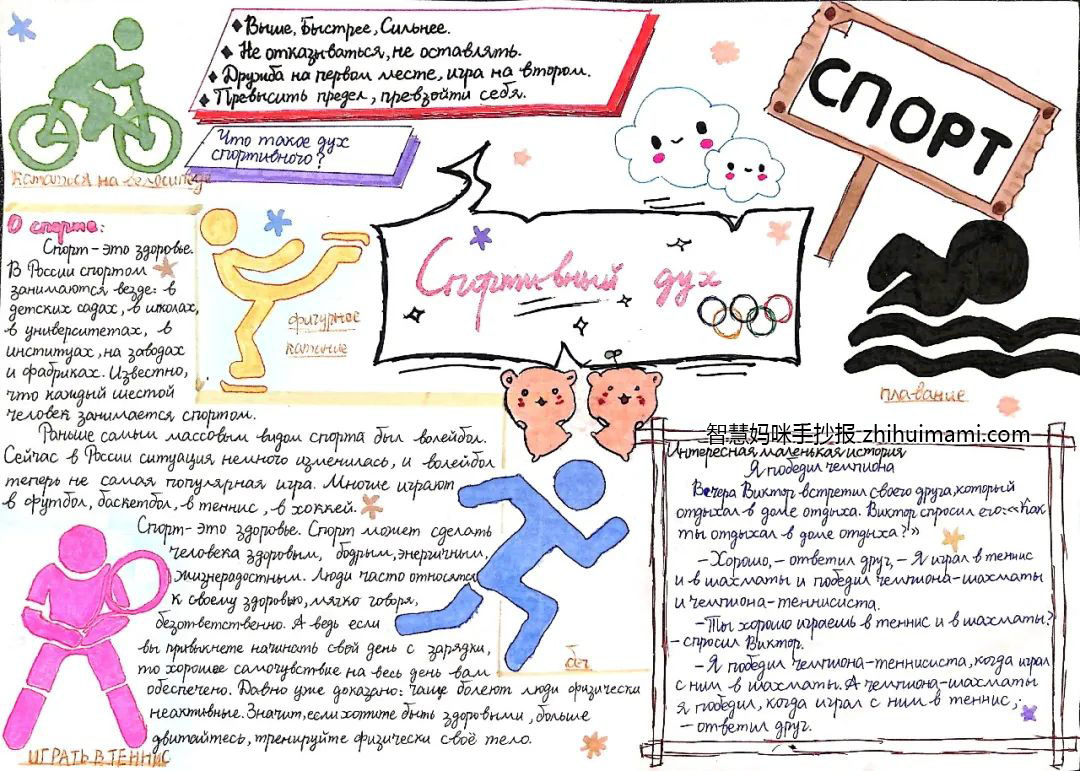 ♦Выше, Быстрее, Сильнее.
♦Не отказываться, не оставлять.
♦Дружба на первом месте, игра на втором.
♦Превысить предел, превзойти себя.
Что такое дух
спортивного?
СПОРТ
Кататься на велосипеде
О спорте:
Спорт - это здоровье.
В России спортом
занимаются везде: в
детских садах, в школах,
в университетах, в
институах, на заводах
и фабриках. Известно,
что каждый шестой
человек занимается спортом.
Раньше самым массовым видом спорта был волейбол.
Сейчас в России ситуация немного изменилась, и волейбол
теперь не самая популярная игра. Многие играют
в футбол, баскетбол, в теннис, в хоккей.
Спорт - это здоровье. Спорт может сделать
человека здоровым, бодрым, энергичным,
жизнерадостным. Люди часто относятся
к своему здоровью, мягко говоря,
безответственно. А ведь если
вы привыкнете начинать свой день с зарядки,
то хорошее самочувствие на весь день вам
обеспечено. Давно уже доказано: чаще болеют люди физически
неактивные. Значит, если хотите быть здоровыми, больше
двигайтесь, тренируйте физически своё тело.
фигурное
катание
Спортивный дух
плавание
бег
ИГРАТЬ В ТЕННИС
智慧妈咪手抄报 zhihuimami.com
Интересная маленькая история
Я победил чемпиона
Вечера Виктор встретил своего друга, который
отдыхал в доме отдыха. Виктор спросил его: «Как
ты отдыхал в доме отдыха?»
- Хорошо, - ответил друг, - Я играл в теннис
и в шахматы и победил чемпиона-шахматы
и чемпиона-теннисиста.
- Ты хорошо играешь в теннис и в шахматы?
- спросил Виктор.
- Я победил чемпиона-теннисиста, когда играл
с ним в шахматы. А чемпиона-шахматы
я победил, когда играл с ним в теннис,
- ответил друг.